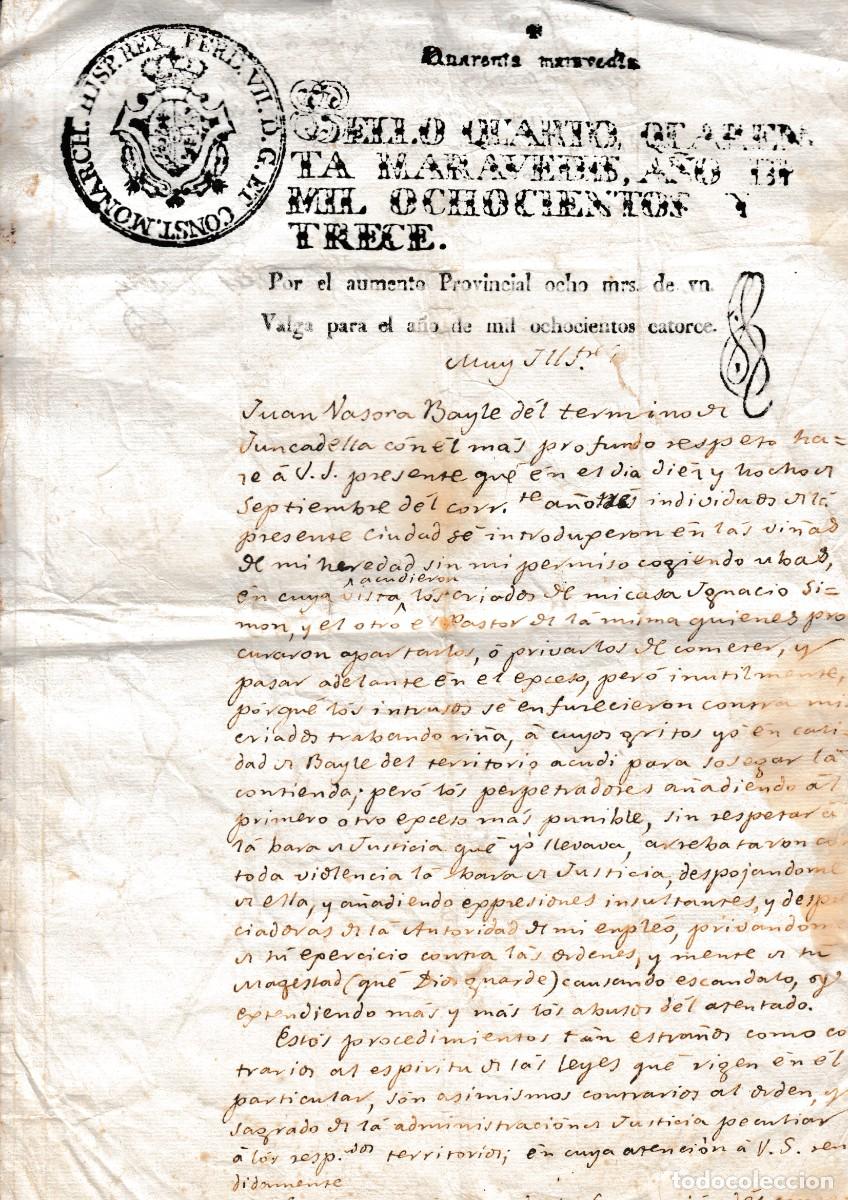 HISP. REX. FERD. VII. D. G. ET CONST. MONARCH.
Quarenta maravedis
SELLO QUARTO, QUAREN
TA MARAVEDIS, AÑO DE
MIL OCHOCIENTOS Y
TRECE.
Por el aumento Provincial ocho mrs. de vn.
Valga para el año de mil ochocientos catorce.
Muy Illtre
Juan Vasora Bayle del termino de
Juncadella con el mas profundo respeto ha=
ze á V.S. presente que en el dia diez y hocho de
Septiembre del corr.te año tres individuos de la
presente Ciudad se introduxeron en las viñas
de mi heredad sin mi permiso cogiendo ubas,
en cuya vista acudieron los criados de mi casa Ignacio Si=
mon, y el otro el Pastor de la misma quienes pro
curaron apartarlos, ó privarlos de cometer, y
pasar adelante en el exceso, pero inutilmente,
porque los intrusos se enfurecieron contra mis
criados trabando riña, á cuyos gritos yo en cali
dad de Bayle del territorio acudi para sosegar la
contienda; pero los perpetradores añadiendo al
primero otro exceso mas punible, sin respetar á
la bara de Justicia que yo llevava, arrebataron con
toda violencia la bara de Justicia, despojandome
de ella, y añadiendo expresiones insultantes, y despre
ciadoras de la Autoridad de mi enpleo, privandome
de su exercicio contra las ordenes, y mente de su
Magestad (que Dios guarde) causando escandalo, y
extendiendo mas y mas los abusos del atentado.
Estos procedimientos tan estraños como co
trarios al espiritu de las Leyes que rigen en el
particular, son asimismos contrarios al orden, y
sagrado de la administracion de Justicia peculiar
á los resp.vos territorios; en cuya atencion á V.S. ren
didamente
todocoleccion